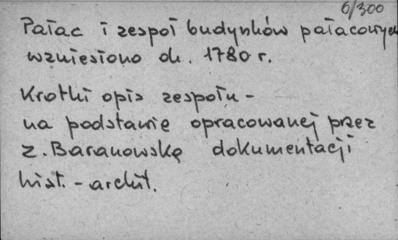 6/300
Pałac i zespoł budynków pałacowych
wzniesiono ok. 1780 r.
Krotki opis zespołu -
na podstawie opracowanej przez
Z. Baranowską dokumentacji
hist. - archit.